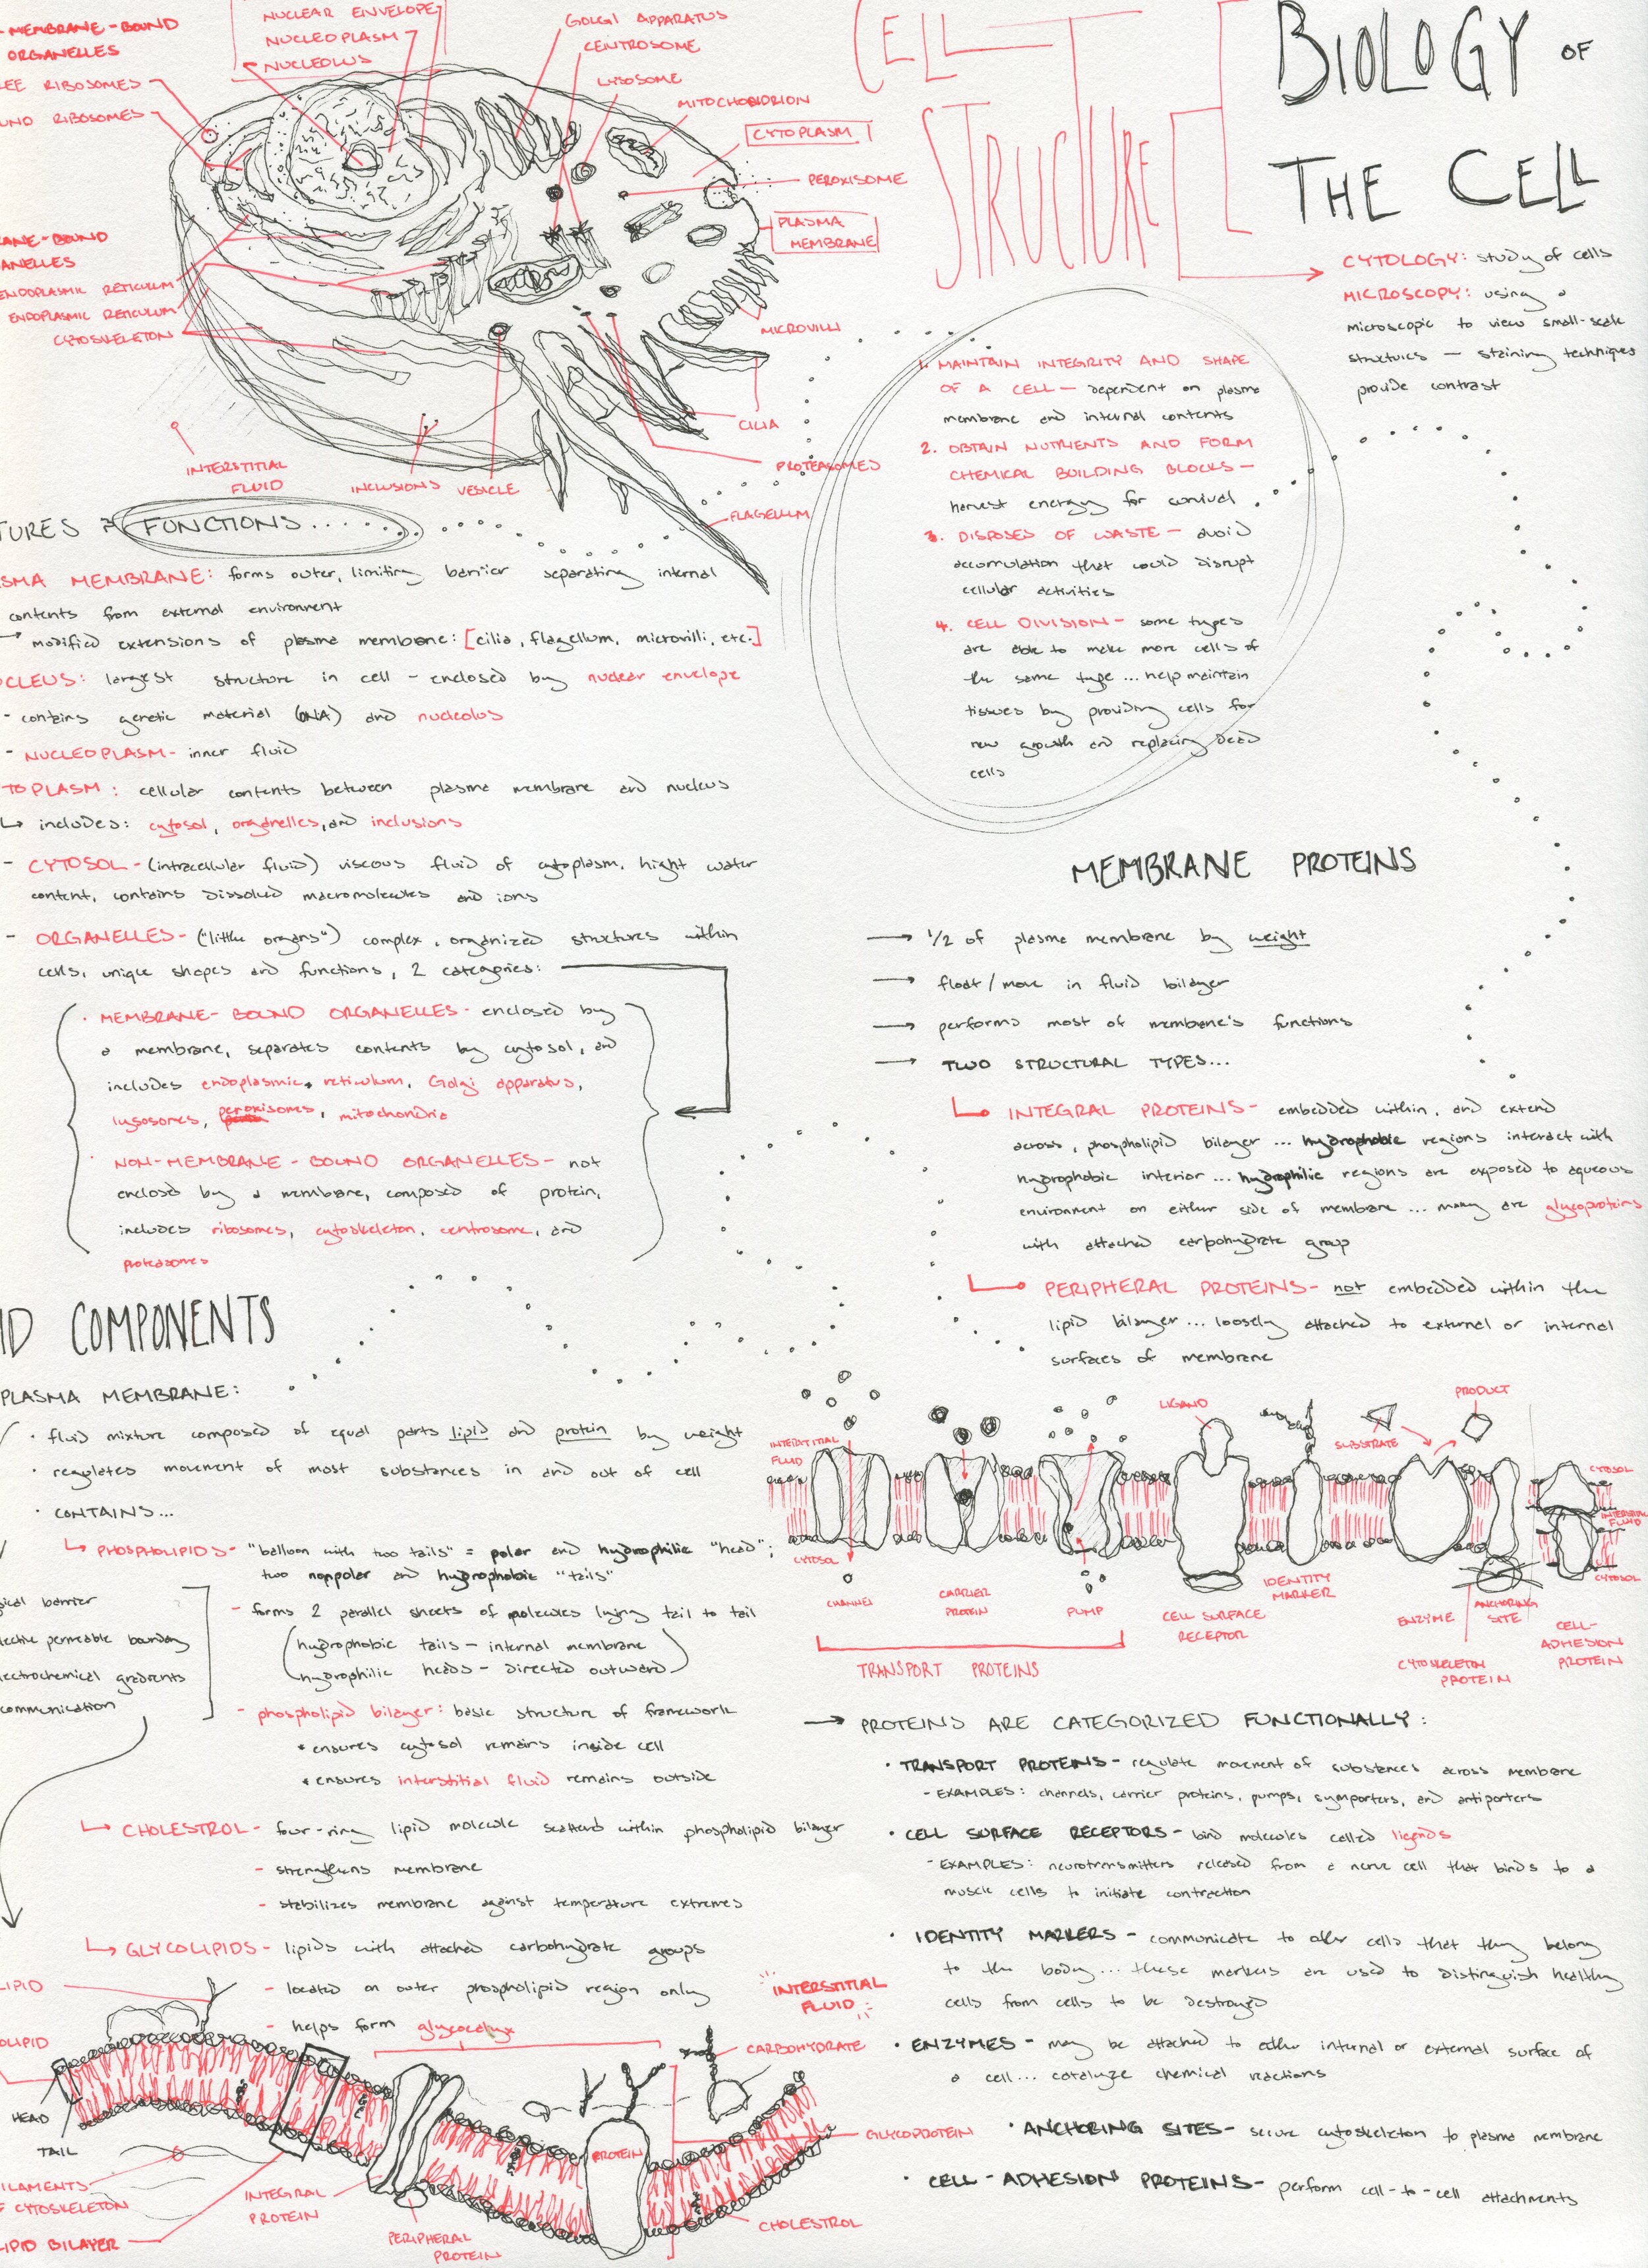 BIOLOGY OF
THE CELL
CELL
STRUCTURE
CYTOLOGY: study of cells
MICROSCOPY: using a
microscopic to view small-scale
structures — staining techniques
provide contrast
- MEMBRANE-BOUND
ORGANELLES
RIBOSOMES
RIBOSOMES
NUCLEAR ENVELOPE
NUCLEOPLASM
NUCLEOLUS
GOLGI APPARATUS
CENTROSOME
LYSOSOME
MITOCHONDRION
CYTOPLASM
PEROXISOME
PLASMA
MEMBRANE
MICROVILLI
CILIA
PROTEASOMES
FLAGELLUM
VESICLE
INCLUSIONS
INTERSTITIAL
FLUID
-BOUND
ENDOPLASMIC RETICULUM
ENDOPLASMIC RETICULUM
CYTOSKELETON
1. MAINTAIN INTEGRITY AND SHAPE
OF A CELL — dependent on plasma
membrane and internal contents
2. OBTAIN NUTRIENTS AND FORM
CHEMICAL BUILDING BLOCKS —
harvest energy for survival
3. DISPOSES OF WASTE — avoid
accumulation that could disrupt
cellular activities
4. CELL DIVISION — some types
are able to make more cells of
the same type ... help maintain
tissues by providing cells for
new growth and replacing dead
cells
FUNCTIONS.....
MEMBRANE: forms outer, limiting barrier separating internal
contents from external environment
→ modified extensions of plasma membrane: [cilia, flagellum, microvilli, etc.]
largest structure in cell - enclosed by nuclear envelope
- contains genetic material (DNA) and nucleolus
- NUCLEOPLASM - inner fluid
TOPLASM: cellular contents between plasma membrane and nucleus
↳ includes: cytosol, organelles, and inclusions
- CYTOSOL - (intracellular fluid) viscous fluid of cytoplasm, hight water
content, contains dissolved macromolecules and ions
- ORGANELLES - ("little organs") complex, organized structures within
cells, unique shapes and functions, 2 categories:
· MEMBRANE-BOUND ORGANELLES - enclosed by
a membrane, separates contents by cytosol, and
includes endoplasmic reticulum, Golgi apparatus,
lysosomes, peroxisomes, mitochondria
· NON-MEMBRANE-BOUND ORGANELLES - not
enclosed by a membrane, composed of protein,
includes ribosomes, cytoskeleton, centrosome, and
proteasomes
MEMBRANE PROTEINS
→ 1/2 of plasma membrane by weight
→ float/move in fluid bilayer
→ performs most of membrane's functions
→ TWO STRUCTURAL TYPES...
INTEGRAL PROTEINS - embedded within, and extend
across, phospholipid bilayer ... hydrophobic regions interact with
hydrophobic interior ... hydrophilic regions are exposed to aqueous
environment on either side of membrane ... many are glycoproteins
with attached carbohydrate group
PERIPHERAL PROTEINS - not embedded within the
lipid bilayer ... loosely attached to external or internal
surfaces of membrane
COMPONENTS
PLASMA MEMBRANE:
· fluid mixture composed of equal parts lipid and protein by weight
· regulates movement of most substances in and out of cell
· CONTAINS...
↳ PHOSPHOLIPIDS - "balloon with two tails" = polar and hydrophilic "head";
two nonpolar and hydrophobic "tails"
- forms 2 parallel sheets of molecules lying tail to tail
(hydrophobic tails - internal membrane
hydrophilic heads - directed outward)
- phospholipid bilayer: basic structure of framework
* ensures cytosol remains inside cell
* ensures interstitial fluid remains outside
barrier
permeable boundary
gradients
communication
↳ CHOLESTROL - four-ring lipid molecule scattered within phospholipid bilayer
- strengthens membrane
- stabilizes membrane against temperature extremes
↳ GLYCOLIPIDS - lipids with attached carbohydrate groups
- located on outer phospholipid region only
- helps form glycocalyx
INTERSTITIAL
FLUID
CYTOSOL
CHANNEL
CARRIER
PROTEIN
PUMP
TRANSPORT PROTEINS
LIGAND
CELL SURFACE
RECEPTOR
IDENTITY
MARKER
SUBSTRATE
PRODUCT
ENZYME
ANCHORING
SITE
CYTOSKELETON
PROTEIN
CELL-
ADHESION
PROTEIN
CYTOSOL
INTERSTITIAL
FLUID
CYTOSOL
→ PROTEINS ARE CATEGORIZED FUNCTIONALLY:
· TRANSPORT PROTEINS - regulate movement of substances across membrane
- EXAMPLES: channels, carrier proteins, pumps, symporters, and antiporters
· CELL SURFACE RECEPTORS - bind molecules called ligands
- EXAMPLES: neurotransmitters released from a nerve cell that binds to a
muscle cells to initiate contraction
· IDENTITY MARKERS - communicate to other cells that they belong
to the body ... these markers are used to distinguish healthy
cells from cells to be destroyed
· ENZYMES - may be attached to either internal or external surface of
a cell ... catalyze chemical reactions
· ANCHORING SITES - secure cytoskeleton to plasma membrane
· CELL-ADHESION PROTEINS - perform cell-to-cell attachments
LIPID
HEAD
TAIL
CYTOSKELETON
BILAYER
INTEGRAL
PROTEIN
PERIPHERAL
PROTEIN
PROTEIN
INTERSTITIAL
FLUID
CARBOHYDRATE
GLYCOPROTEIN
CHOLESTROL